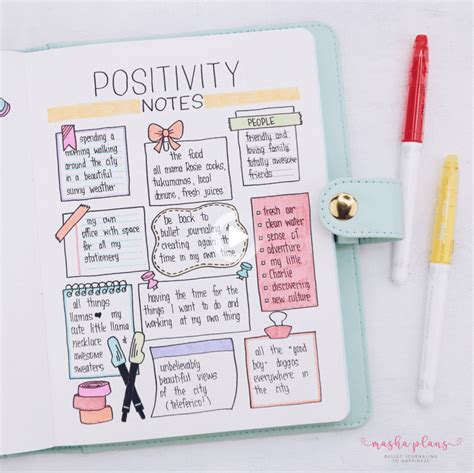 POSITIVITY
NOTES
spending a
morning walking
around the city
in a beautiful
sunny weather
the food
all mama Rosie cooks,
tukumanas, local
donuts, fresh juices
PEOPLE
friendly and
loving family,
totally awesome
friends
my own
office with space
for all my
stationery
be back to
bullet journaling
creating again
time in my own
time
fresh air
clean water
sense of
adventure
my little
Charlie
discovering
new culture
all things
llamas ♥ my
cute little llama
necklace
awesome
sweaters
having the time for
things I want to do and
working at my own thing
unbelievably
beautiful views
of the city
(teleferico!)
all the "good
boy" doggos
everywhere in
the city
masha plans
BULLET JOURNALING
TO HAPPINESS